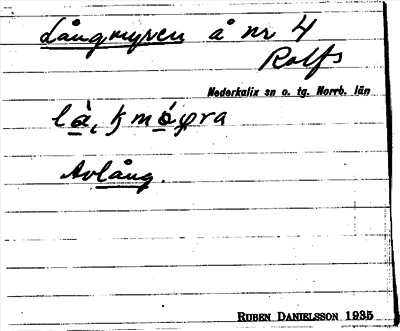 Långmyren å nr 4
Rolfs
Nederkalix sn o. tg. Norrb. län
Avlång.
RUBEN DANIELSSON 1935